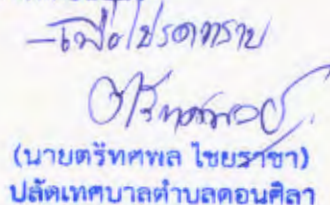 -เพื่อโปรดทราบ
(นายตรีทศพล ไชยราชา)
ปลัดเทศบาลตำบลดอนศิลา